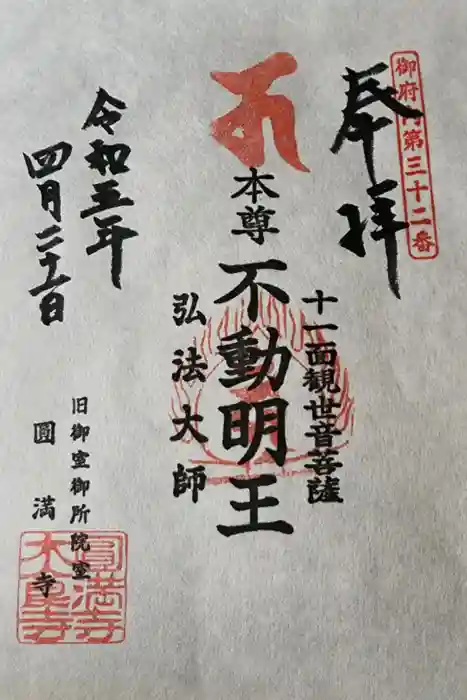 御府内第三十二番
奉拝
十一面観世音菩薩
本尊
不動明王
弘法大師
令和五年
四月二十一日
旧御室御所院室
圓満寺
圓満寺